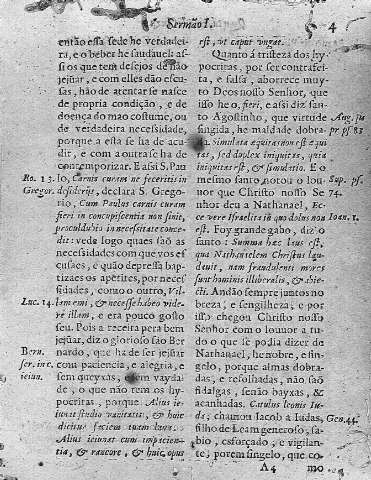 Sermão I.
4
então essa sede he verdadei-
ra, e o beber he saudavel: as-
si os que tem desejos de não
jejũar, e com elles dão escu-
sas, hão de atentar se nasce
de propria condição, e de
doença do mao costume, ou
de verdadeira necessidade,
porque a essa se ha de acu-
dir, e com a outra se ha de
contemporizar. E assi S. Pau
Ro. 13. lo, Carnis curam ne feceritis in
Gregor. desiderijs, declara S. Grego-
rio, Cum Paulus carnis curam
fieri in concupiscentia non sinit,
procul dubio in necessitate conce-
dit: vede logo quaes são as
necessidades com que vos es-
cusaes, e quão depressa bap-
tizaes os apetites, por neces-
sidades, como o outro, Vil-
Luc. 14. lam emi, & necesse habeo vide-
re illam, e era pouco gosto
seu. Pois a receita pera bem
jejũar, diz o glorioso são Ber
Bern. nardo, que ha de ser jejũar
ser. in c. com paciencia, e alegria, e
ieiun. sem queyxas, sem vayda-
de, o que não tem os hy-
pocritas, porque Alius ie-
iunat studio vanitatis, & huic
dicitur faciem tuam laua.
Alius ieiunat cum impacien-
tia, & rancore, & huic opus
est, ut caput ungat.
Quanto á tristeza dos hy-
pocritas, por ser contrafei-
ta, e falsa, aborrece muy-
to Deos nosso Senhor, que
isso he o, fieri, e assi diz san-
to Agostinho, que virtude Aug. su
fingida, he maldade dobra- pr ps. 83
da. Simulata æquitas non est æqui
tas, sed duplex iniquitas, quia
iniquitas est, & simulatio. E o
mesmo santo notou o lou- Sup. ps.
uor que Christo nosso Se 74.
nhor deu a Nathanael, Ec-
ce vere Israelita in quo dolus non Ioan. 1.
est. Foy grande gabo, diz o
santo: Summa hæc laus est,
qua Nathanielem Christus lau-
dauit, nam fraudulenti mores
sunt hominis illiberalis, & abie-
cti. Andão sempre juntos no
breza, e sengilheza, e por
isso chegou Christo nosso
Senhor com o louuor a tu-
do o que se podia dizer de
Nathanael, he nobre, e sin-
gelo, porque almas dobra-
das, e refolhadas, não são
fidalgas, senão bayxas, &
acanhadas. Catulus leonis Iu-
da, chamou Iacob a Iudas, Gen. 44.
filho de Leam generoso, sa-
bio, esforçado, e vigilan-
te, porem singelo, que co-
A 4 mo